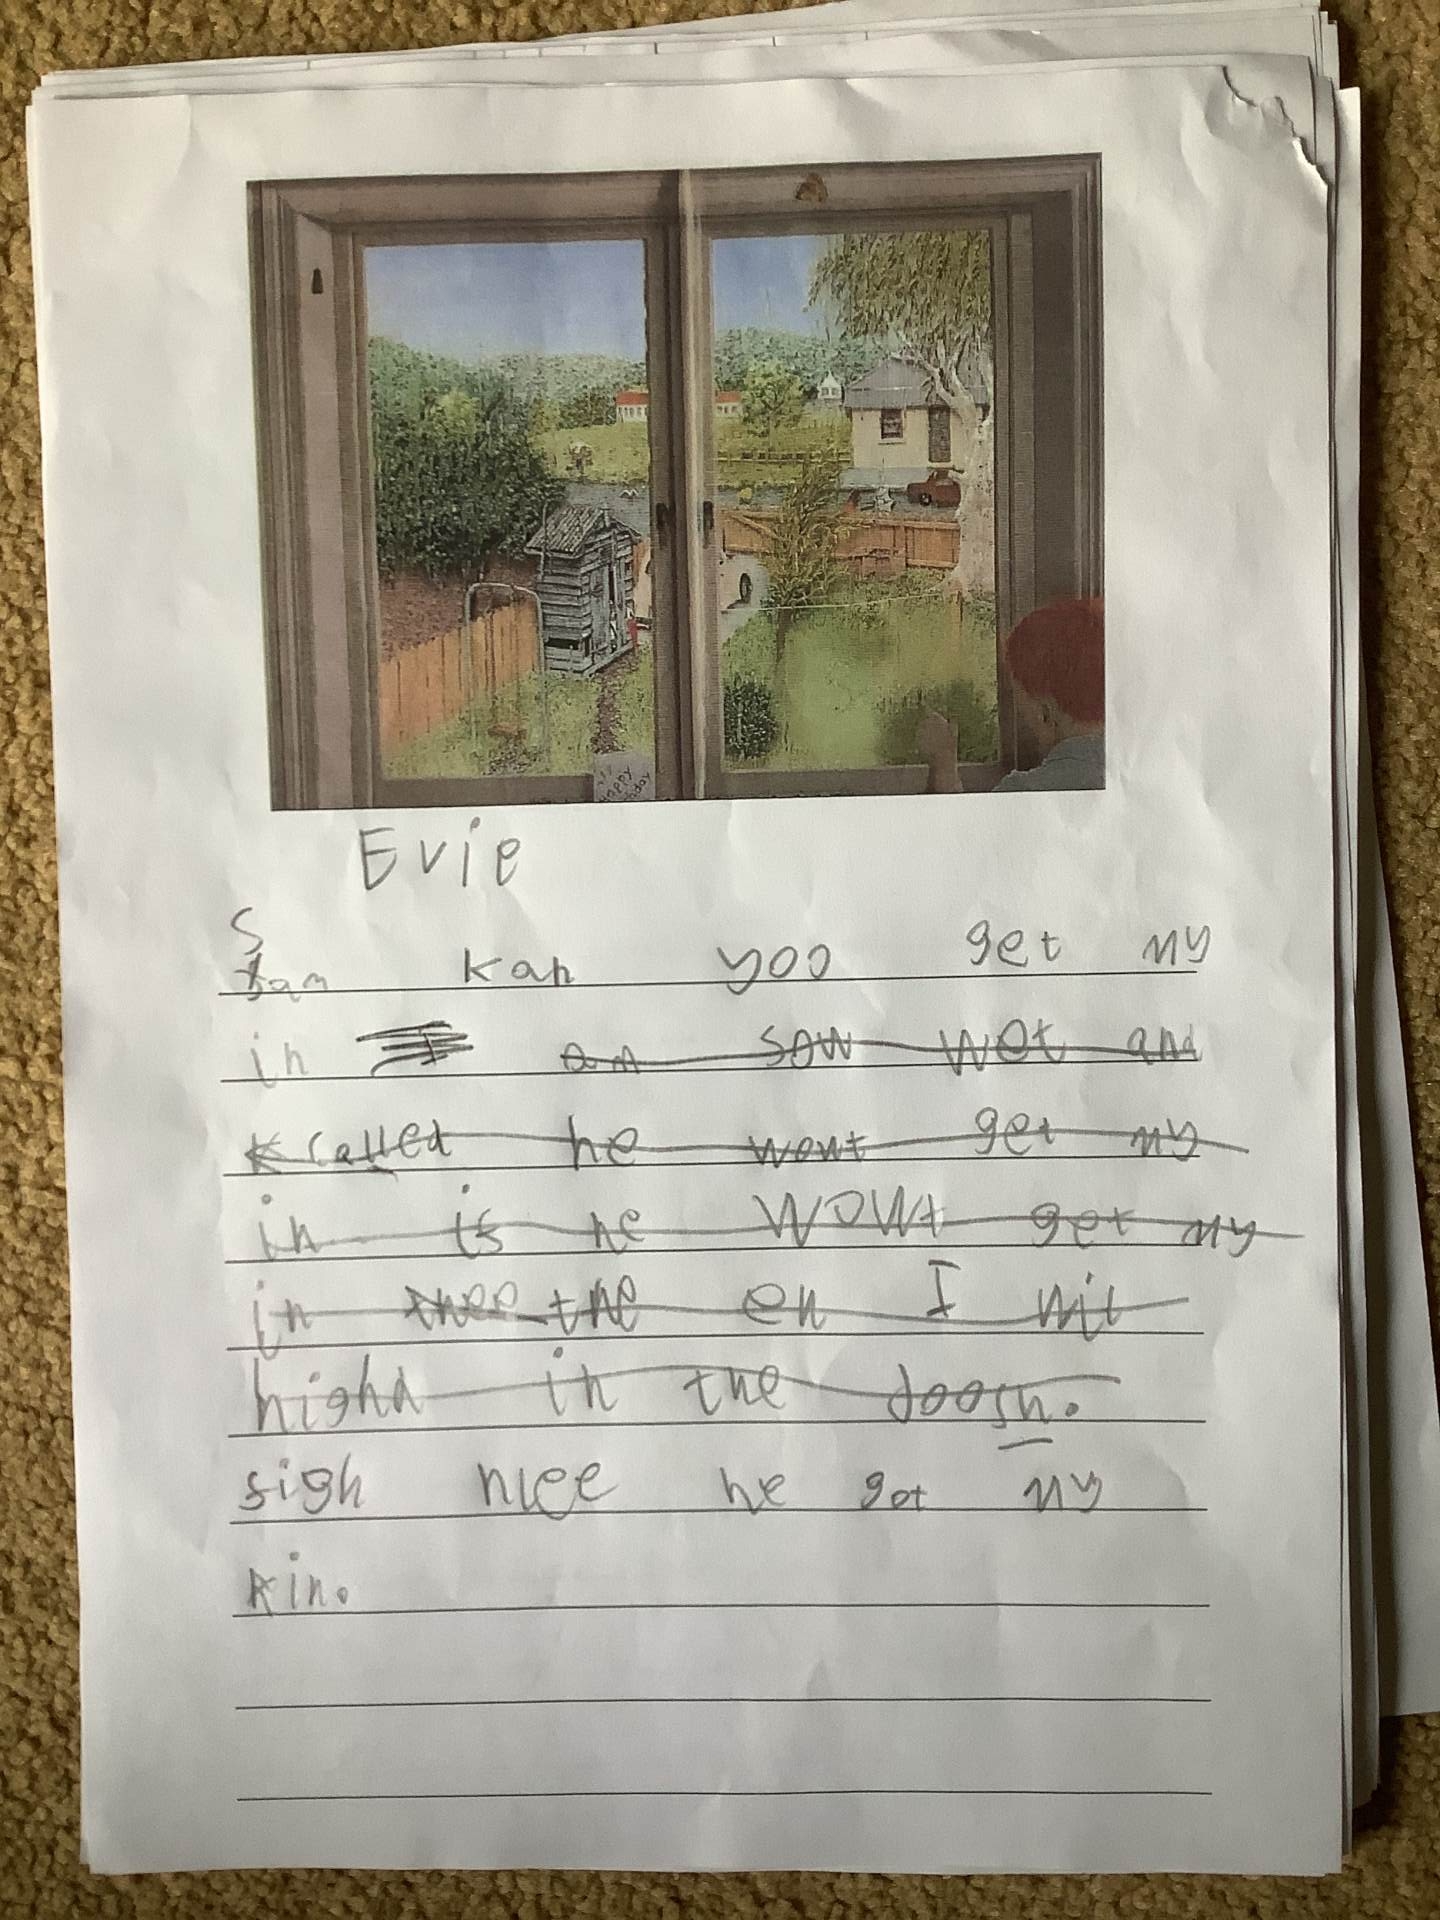 Happy
Evie
Sam kan yoo get my
in I am sow wet and
k called he wont get my
in is he wowt get my
in thee the en I wil
highd in the doosh.
sigh nice he got my
kin.